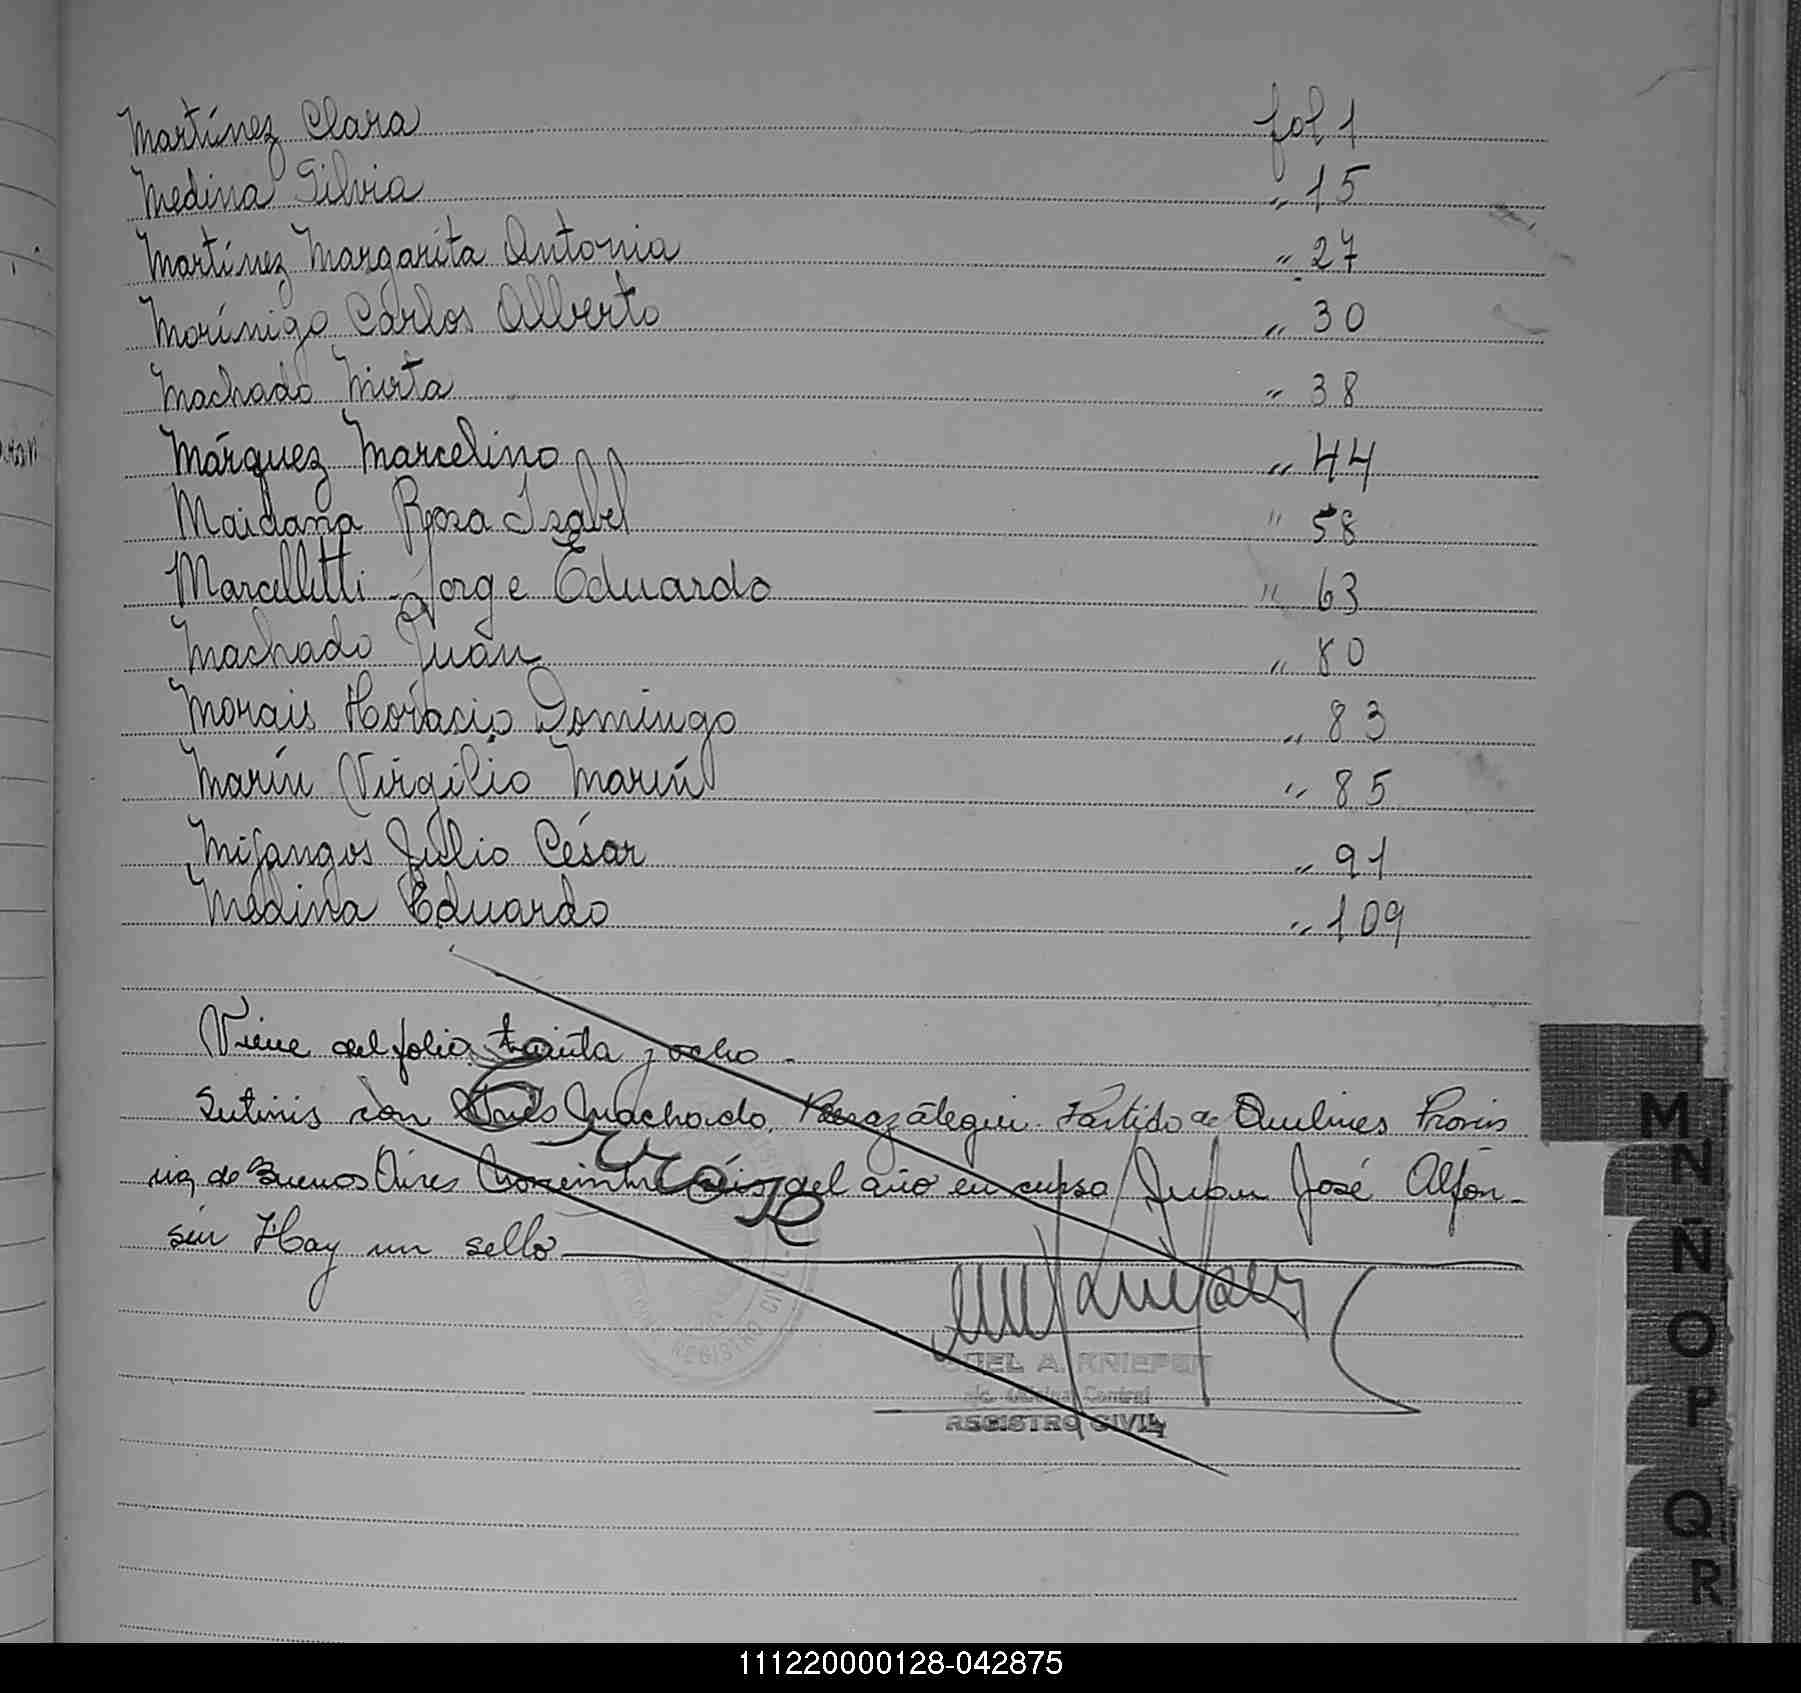 Martínez Clara fol 1
Medina Silvia " 15
Martínez Margarita Antonia " 27
Morínigo Carlos Alberto " 30
Machado Mirta " 38
Márquez Marcelino " 44
Maidana Rosa Isabel " 58
Marcelletti Jorge Eduardo " 63
Machado Juan " 80
Morais Horacio Domingo " 83
Marín Virgilio Marín " 85
Mijangos Julio César " 91
Medina Eduardo " 109
Viene del folio treinta y ocho -
con Inés Machado. Berazátegui. Partido de Quilmes Provin
cia de Buenos Aires Noviembre seis del año en curso Juan José Alfon-
sín Hay un sello
Error
A. KNIEPER
Central
REGISTRO CIVIL
REGISTRO CIVIL
M
N
Ñ
O
P
Q
R
111220000128-042875